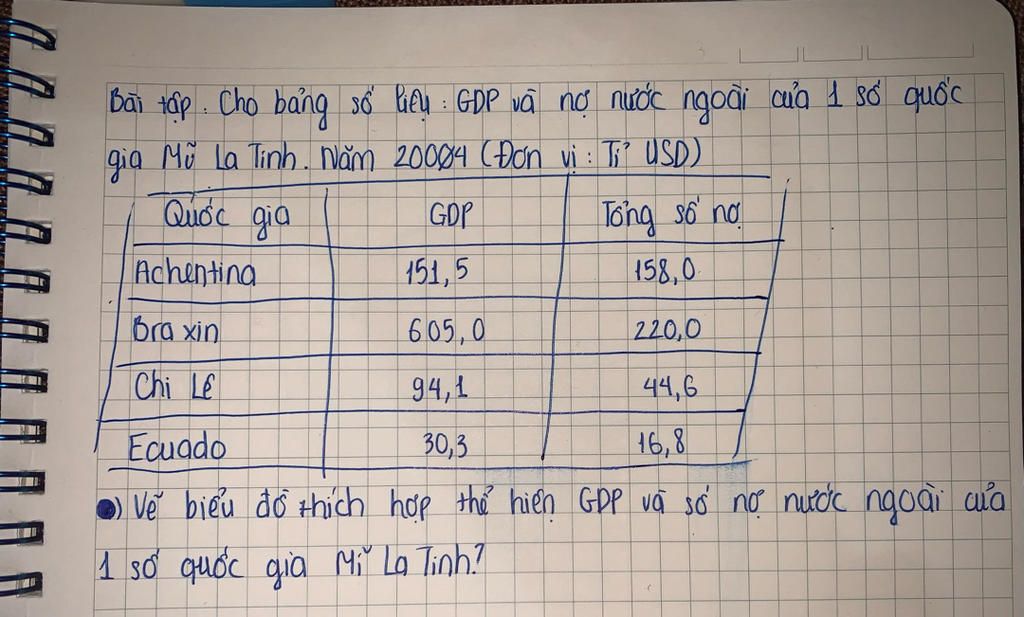 Bài tập: Cho bảng số liệu: GDP và nợ nước ngoài của 1 số quốc
gia Mũ La Tinh. Năm 20004 (Đơn vị: Tỉ USD)
Quốc gia GDP Tổng số nợ
Achentina 151,5 158,0
Bra xin 605,0 220,0
Chi Lê 94,1 44,6
Ecuado 30,3 16,8
) Vẽ biểu đồ thích hợp thể hiện GDP và số nợ nước ngoài của
1 số quốc gia Mĩ La Tinh?